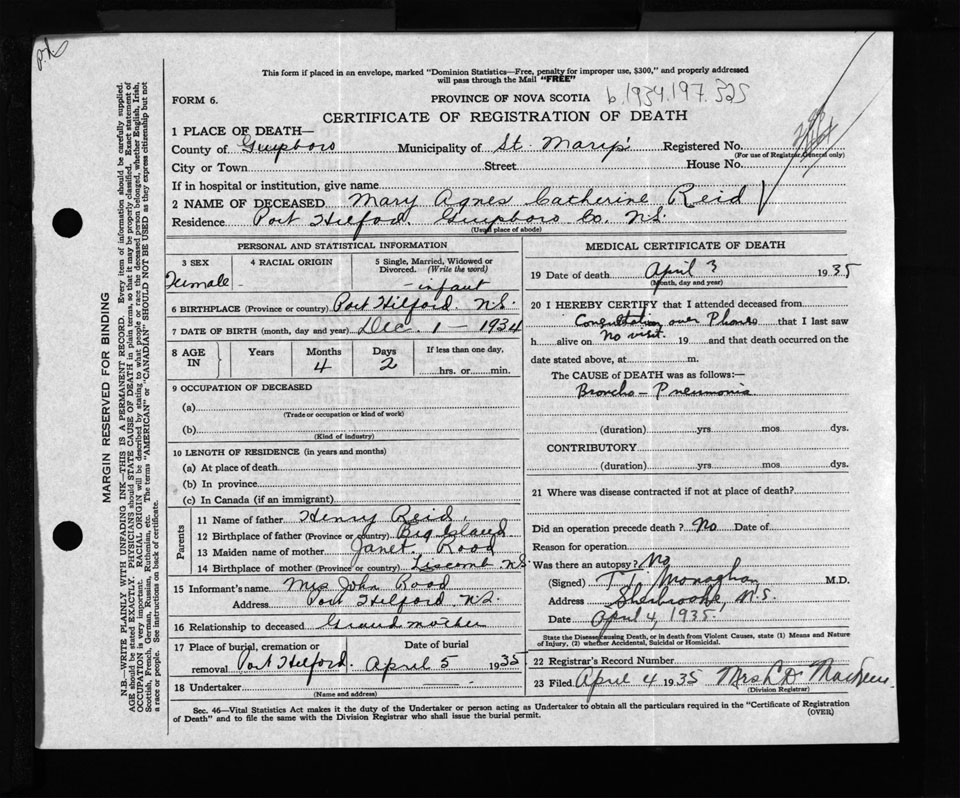 This form if placed in an envelope, marked "Dominion Statistics—Free, penalty for improper use, $300," and properly addressed
will pass through the Mail "FREE"
FORM 6.
PROVINCE OF NOVA SCOTIA
b.1934.197.325
CERTIFICATE OF REGISTRATION OF DEATH
1 PLACE OF DEATH—
County of Guysboro Municipality of St. Mary's Registered No.
(For use of Registrar General only)
City or Town Street House No.
If in hospital or institution, give name
2 NAME OF DECEASED Mary Agnes Catherine Reid
Residence Port Hilford. Guysboro Co. N.S.
(Usual place of abode)
PERSONAL AND STATISTICAL INFORMATION
3 SEX 4 RACIAL ORIGIN 5 Single, Married, Widowed or
Divorced. (Write the word)
Female - - infant
6 BIRTHPLACE (Province or country) Port Hilford. N.S.
7 DATE OF BIRTH (month, day and year) Dec. 1 - 1934
8 AGE IN Years Months Days If less than one day,
4 2 hrs. or min.
9 OCCUPATION OF DECEASED
(a)
(Trade or occupation or kind of work)
(b)
(Kind of industry)
10 LENGTH OF RESIDENCE (in years and months)
(a) At place of death
(b) In province
(c) In Canada (if an immigrant)
Parents
11 Name of father Henry Reid.
12 Birthplace of father (Province or country) Big Island
13 Maiden name of mother Janet Rood
14 Birthplace of mother (Province or country) Liscomb N.S.
15 Informant's name Mrs John Rood
Address Port Hilford. N.S.
16 Relationship to deceased Grandmother
17 Place of burial, cremation or Date of burial
removal Port Hilford. April 5 1935
18 Undertaker
(Name and address)
MEDICAL CERTIFICATE OF DEATH
19 Date of death April 3 1935
(Month, day and year)
20 I HEREBY CERTIFY that I attended deceased from
Consultation over Phones that I last saw
h alive on No visit. 19 and that death occurred on the
date stated above, at m.
The CAUSE of DEATH was as follows:—
Broncho - Pneumonia
(duration) yrs mos dys.
CONTRIBUTORY
(duration) yrs mos dys.
21 Where was disease contracted if not at place of death?
Did an operation precede death? No Date of
Reason for operation
Was there an autopsy? No
(Signed) T.T. Monaghan M.D.
Address Sherbrooke, N.S.
Date April 4, 1935.
State the Disease Causing Death, or in death from Violent Causes, state (1) Means and Nature
of Injury, (2) whether Accidental, Suicidal or Homicidal.
22 Registrar's Record Number
23 Filed April 4 1935 Mrs L D
(Division Registrar)
Sec. 46—Vital Statistics Act makes it the duty of the Undertaker or person acting as Undertaker to obtain all the particulars required in the "Certificate of Registration
of Death" and to file the same with the Division Registrar who shall issue the burial permit. (OVER)
MARGIN RESERVED FOR BINDING
N.B.—WRITE PLAINLY WITH UNFADING INK—THIS IS A PERMANENT RECORD. Every item of information should be carefully supplied.
AGE should be stated EXACTLY. PHYSICIANS should STATE CAUSE OF DEATH in plain terms, so that it may be properly classified. Exact statement of
OCCUPATION is very important. RACIAL ORIGIN will be described by stating to what people or race the deceased person belonged, whether English, Irish,
Scottish, French, German, Russian, Ruthenian, etc. The terms "AMERICAN" or "CANADIAN" SHOULD NOT BE USED as they express citizenship but not
a race or people. See instructions on back of certificate.